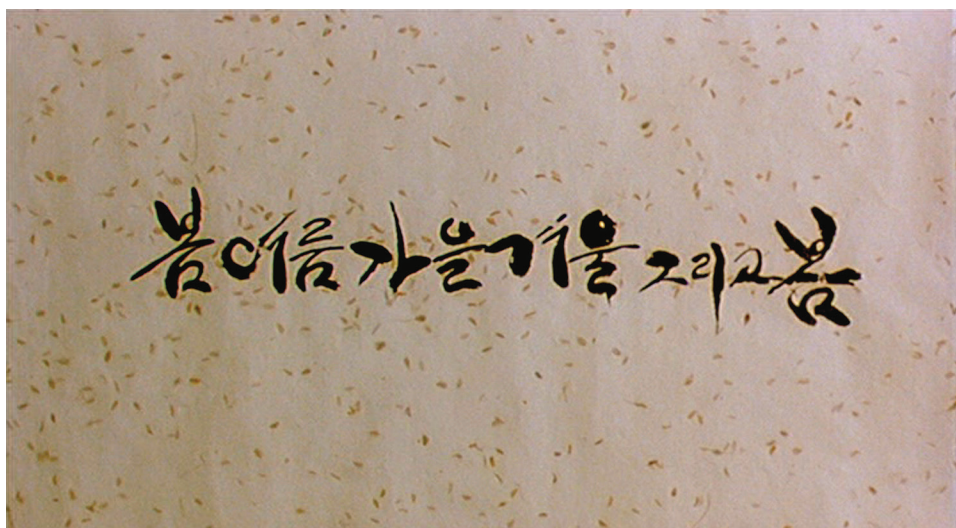 봄여름가을겨울 그리고 봄